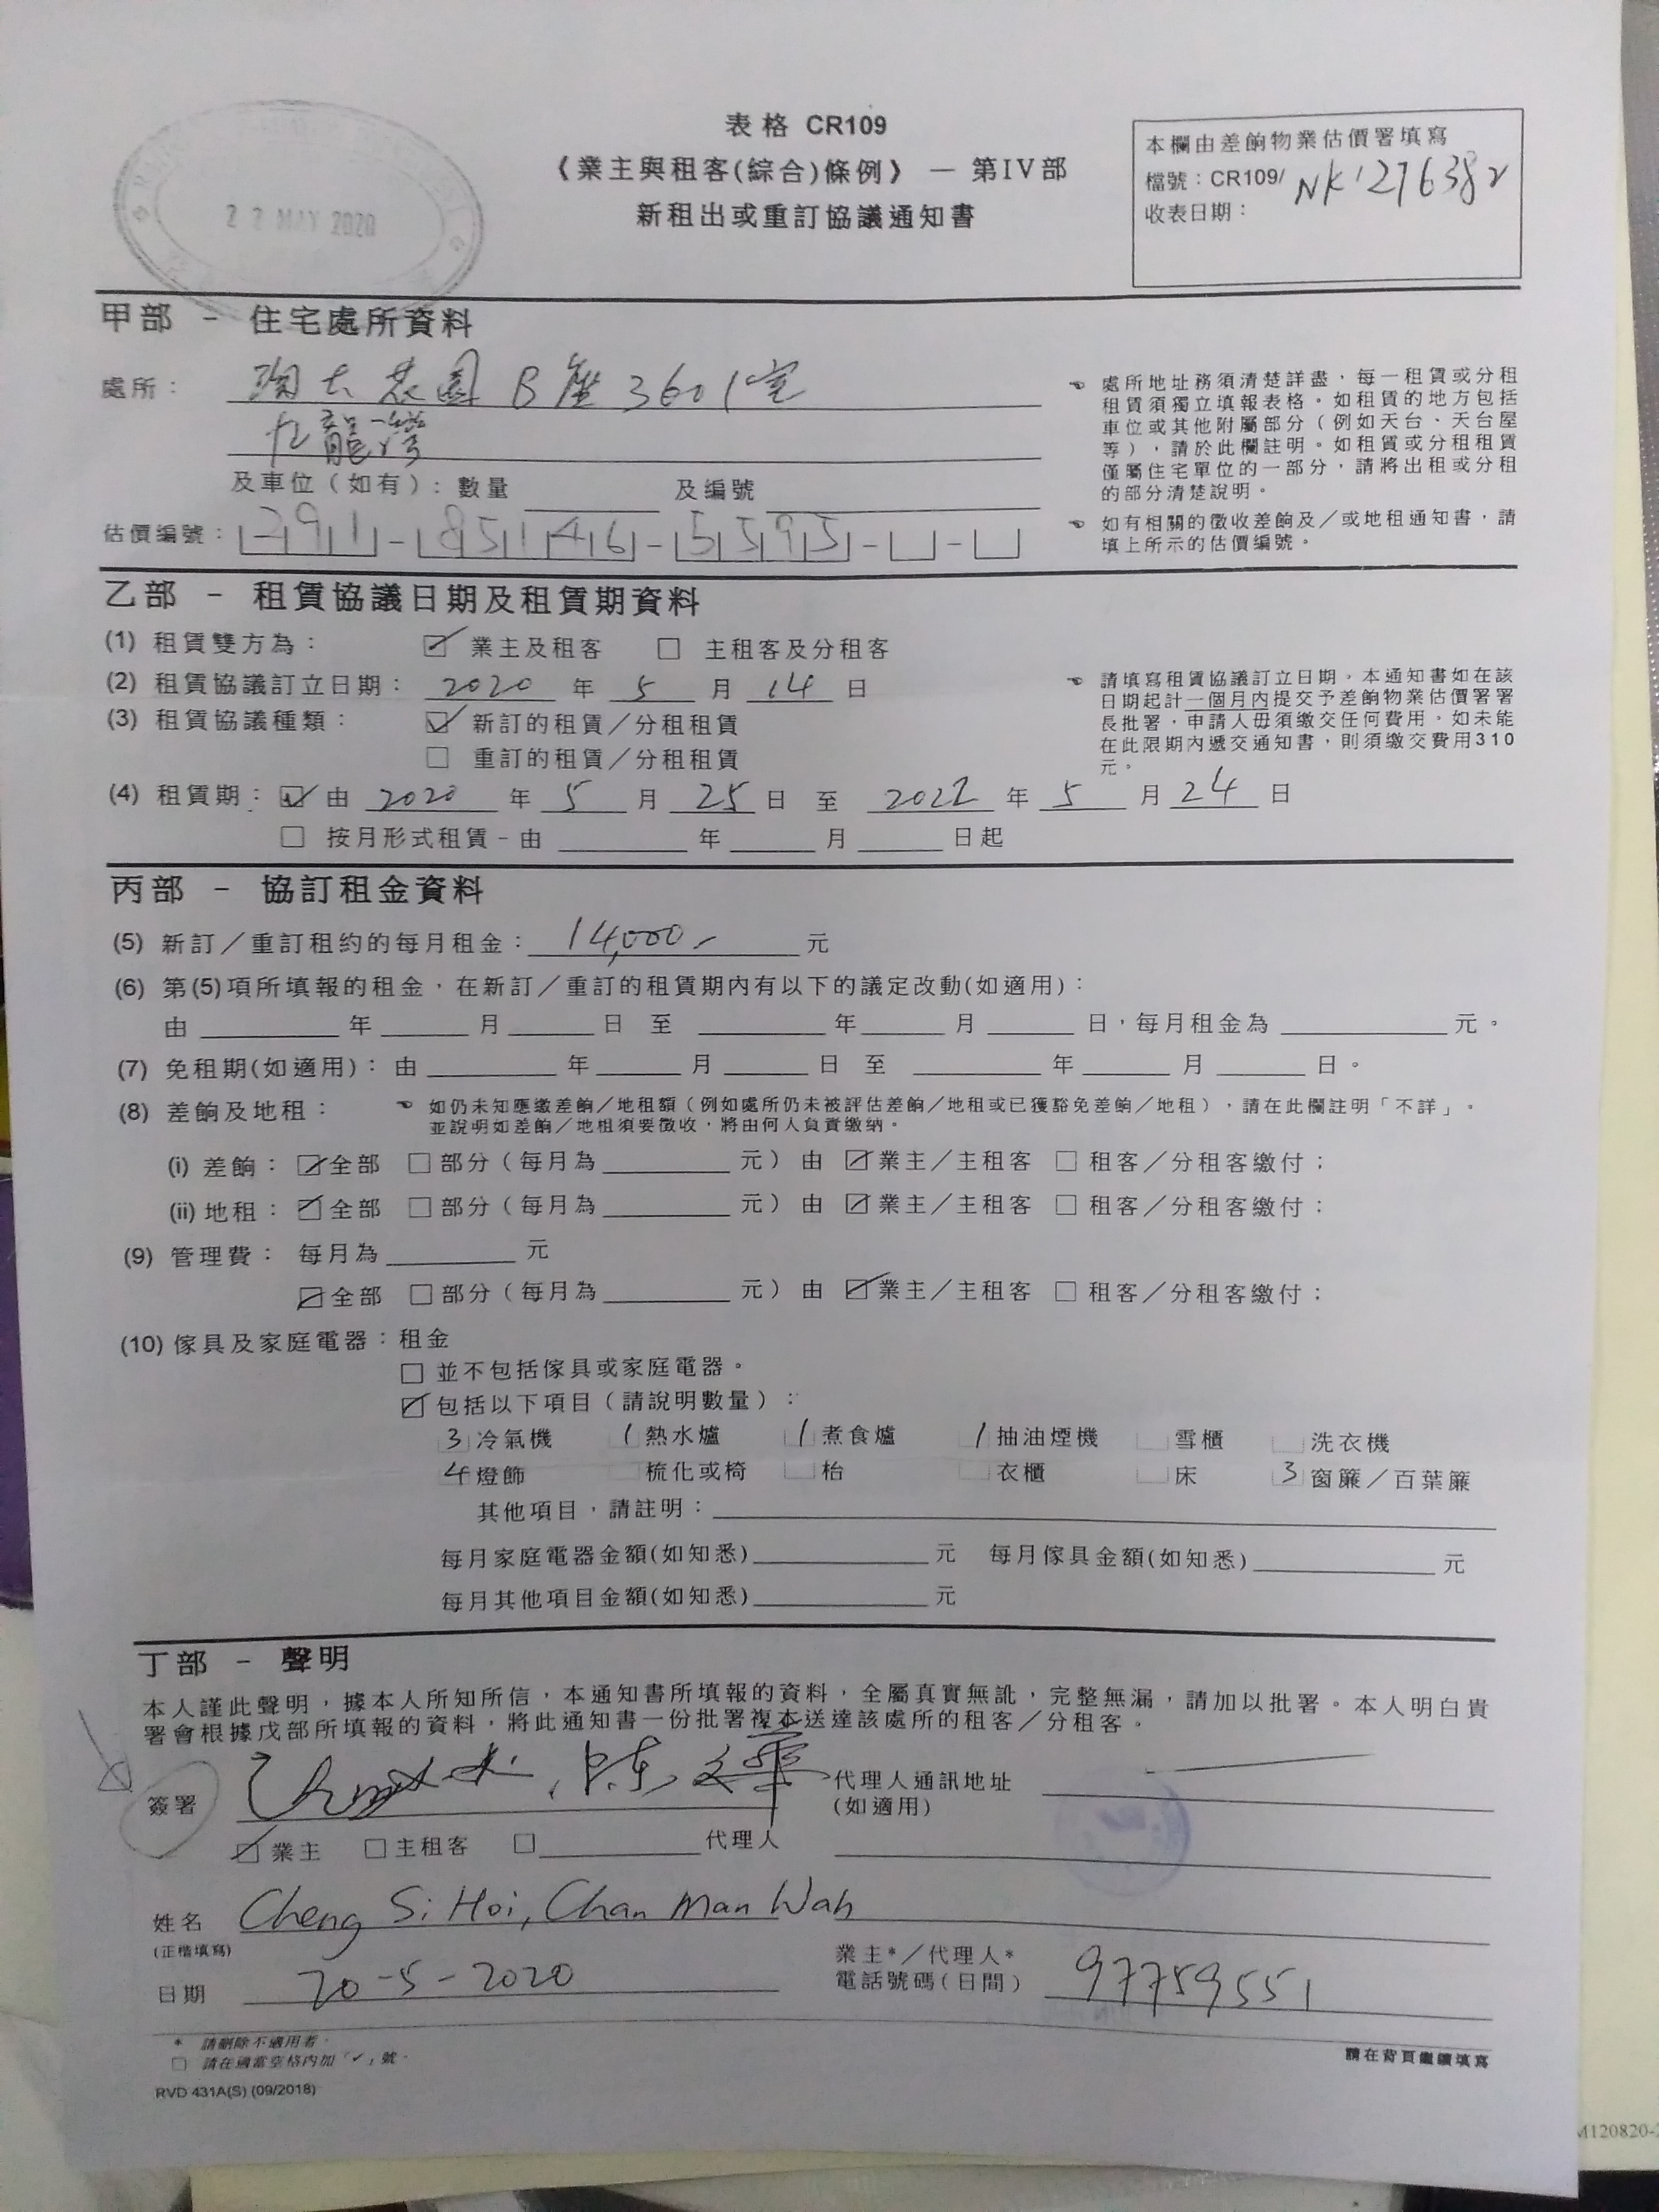 22 MAY 2020
表格 CR109
《業主與租客(綜合)條例》 — 第IV部
新租出或重訂協議通知書
本欄由差餉物業估價署填寫
檔號：CR109/ NK1276382
收表日期：
甲部 - 住宅處所資料
處所： 淘大花園 B座 3601室
九龍灣
及車位（如有）：數量 及編號
估價編號： 291 - 85146 - 5595 - -
☜ 處所地址務須清楚詳盡，每一租賃或分租
租賃須獨立填報表格。如租賃的地方包括
車位或其他附屬部分（例如天台、天台屋
等），請於此欄註明。如租賃或分租租賃
僅屬住宅單位的一部分，請將出租或分租
的部分清楚說明。
☜ 如有相關的徵收差餉及／或地租通知書，請
填上所示的估價編號。
乙部 - 租賃協議日期及租賃期資料
(1) 租賃雙方為： ☑ 業主及租客 ☐ 主租客及分租客
(2) 租賃協議訂立日期： 2020 年 5 月 14 日
(3) 租賃協議種類： ☑ 新訂的租賃／分租租賃
☐ 重訂的租賃／分租租賃
☜ 請填寫租賃協議訂立日期。本通知書如在該
日期起計一個月內提交予差餉物業估價署署
長批署，申請人毋須繳交任何費用。如未能
在此限期內遞交通知書，則須繳交費用310
元。
(4) 租賃期： ☑ 由 2020 年 5 月 25 日 至 2022 年 5 月 24 日
☐ 按月形式租賃 - 由 年 月 日起
丙部 - 協訂租金資料
(5) 新訂／重訂租約的每月租金： 14,000 元
(6) 第(5)項所填報的租金，在新訂／重訂的租賃期內有以下的議定改動(如適用)：
由 年 月 日 至 年 月 日，每月租金為 元。
(7) 免租期(如適用)：由 年 月 日 至 年 月 日。
(8) 差餉及地租： ☜ 如仍未知應繳差餉／地租額（例如處所仍未被評估差餉／地租或已獲豁免差餉／地租），請在此欄註明「不詳」。
並說明如差餉／地租須要徵收，將由何人負責繳納。
(i) 差餉： ☑全部 ☐部分（每月為 元） 由 ☑業主／主租客 ☐ 租客／分租客繳付；
(ii) 地租： ☑全部 ☐部分（每月為 元） 由 ☑業主／主租客 ☐ 租客／分租客繳付；
(9) 管理費： 每月為 元
☑全部 ☐部分（每月為 元） 由 ☑業主／主租客 ☐ 租客／分租客繳付；
(10) 傢具及家庭電器：租金
☐ 並不包括傢具或家庭電器。
☑包括以下項目（請說明數量）：
3 冷氣機 1 熱水爐 1 煮食爐 1 抽油煙機 雪櫃 洗衣機
4 燈飾 梳化或椅 枱 衣櫃 床 3 窗簾／百葉簾
其他項目，請註明：
每月家庭電器金額(如知悉) 元 每月傢具金額(如知悉) 元
每月其他項目金額(如知悉) 元
丁部 - 聲明
本人謹此聲明，據本人所知所信，本通知書所填報的資料，全屬真實無訛，完整無漏，請加以批署。本人明白貴
署會根據戊部所填報的資料，將此通知書一份批署複本送達該處所的租客／分租客。
簽署 陳文華
代理人通訊地址
(如適用)
☑ 業主 ☐ 主租客 ☐ 代理人
姓名 Cheng Si Hoi, Chan Man Wah
(正楷填寫)
日期 20-5-2020
業主*／代理人*
電話號碼(日間) 97759551
* 請刪除不適用者。
☐ 請在適當空格內加「✓」號。
請在背頁繼續填寫
RVD 431A(S) (09/2018)